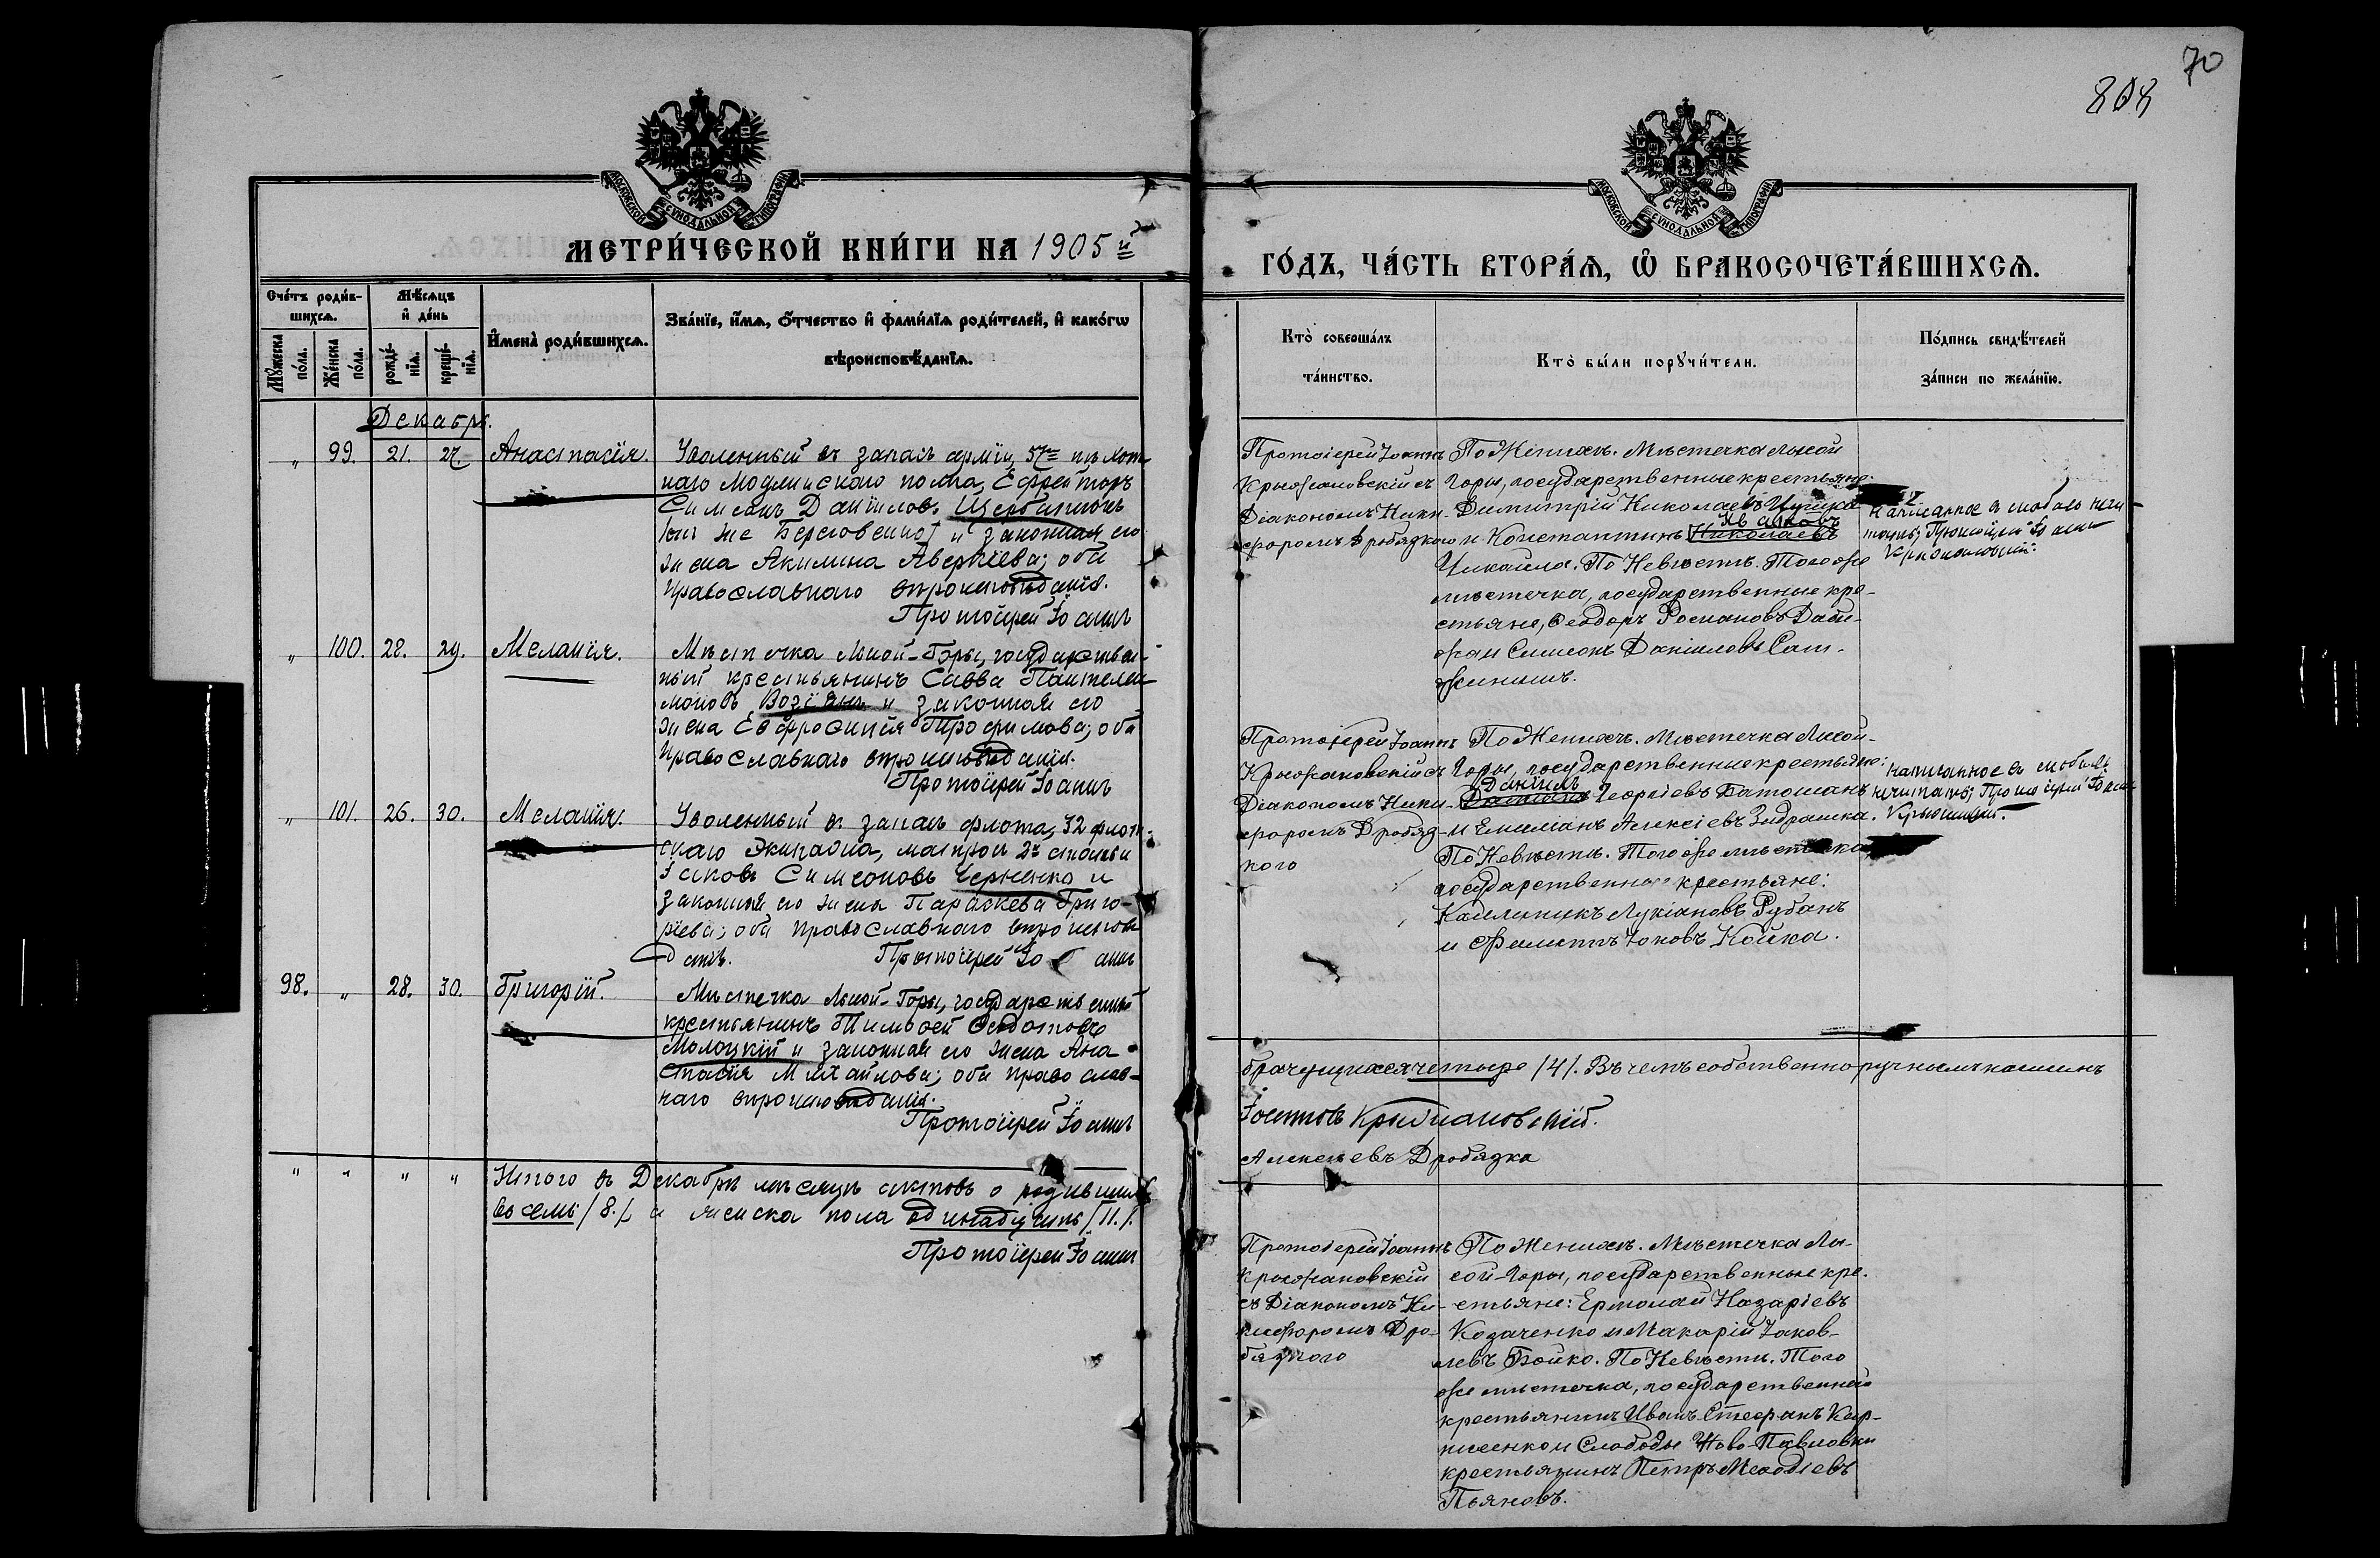 70
808
МОСКОВСКОЙ СѴНОДАЛЬНОЙ ТИПОГРАФІИ
МЕТРИ́ЧЕСКОЙ КНИ́ГИ НА 1905 й
Сче́тъ роди́в-
шихсѧ.
Му́жеска по́ла.
Же́нска по́ла.
Мѣ́сѧцъ
и҆ де́нь
рожде́-
нїѧ.
креще́-
нїѧ.
И҆мена̀ роди́вшихсѧ.
Зва́нїе, и҆́мѧ, о҆́тчество и҆ фамилїѧ роди́телей, и҆ како́гѡ
вѣроисповѣ́данїѧ.
Декабрь.
„ 99. 21. 27. Анастасія.
Уволенный въ запасъ арміи, 57го пѣхот-
наго Модлинскаго полка, Ефрейторъ
Симеонъ Даніиловъ Щербатюкъ
и законная его
жена Акилина Аверкіева; оба
православнаго вѣроисповѣданія.
Протоіерей Іоаннъ
„ 100. 28. 29. Меланія.
Мѣстечка Лысой-Горы, государствен-
ный крестьянинъ Савва Пантелей-
моновъ Возіянъ и законная его
жена Евфросинія Трофимова; оба
православнаго вѣроисповѣданія.
Протоіерей Іоаннъ
„ 101. 26. 30. Меланія.
Уволенный въ запасъ флота, 32 флот-
скаго Экипажа, матросъ 2й статьи
Іаковъ Симеоновъ Черненко и
законная его жена Параскева Григо-
ріева; оба православнаго вѣроисповѣ-
данія. Протоіерей Іоаннъ
98. „ 28. 30. Григорій.
Мѣстечка Лысой-Горы, государственный
крестьянинъ Тимоѳей Ѳедотовъ
Молоцкій и законная его жена Ана
стасія Михайлова; оба православ-
наго вѣроисповѣданія.
Протоіерей Іоаннъ
„ „ „ „ Итого въ Декабрѣ мѣсяцѣ актовъ о родившихъ
восемь /8./ и женска пола одинадцать /11./.
Протоіерей Іоаннъ
МОСКОВСКОЙ СѴНОДАЛЬНОЙ ТИПОГРАФІИ
ГО́ДЪ, ЧА́СТЬ ВТОРА́Ѧ, Ѡ҆ БРАКОСОЧЕТА́ВШИХСѦ.
Кто̀ соверша́лъ
та́инство.
Кто̀ бы́ли порꙋчи́тели.
По́дпись свидѣ́телей
за́писи по жела́нїю.
Протоіерей Іоаннъ
Крыжановскій съ
Діакономъ Ники-
форомъ Дробязкого
По Женихѣ. Мѣстечка Лысой
Горы, государственные крестьяне:
Димитрій Николаевъ Цушка
Іаковъ
и Константинъ Николаевъ
Цикаило. По Невѣстѣ. Того же
мѣстечка, государственные кре-
стьяне, Ѳеодоръ Романовъ
и Симеонъ Даніиловъ
Написанное въ скобахъ не чи
тать; Протоіерей Іоаннъ
Крыжановскій.
Протоіерей Іоаннъ
Крыжановскій съ
Діакономъ Ники-
форомъ Дробяз-
кого
По Женихѣ. Мѣстечка Лысой-
Горы, государственные крестьяне:
Даніилъ
Георгіевъ Ботошанъ
и Емиліанъ Алексіевъ Зидрашка.
По Невѣстѣ. Того же мѣстечка
государственные крестьяне:
Каллиникъ Лукіановъ Рубанъ
и Филиппъ Іоновъ Койка.
Написанное въ скобахъ
не читать; Протоіерей Іоаннъ
Брачущихся четыре /4/. Въ чемъ собственноручнымъ
Іоанновъ Крыжановскій.
Алексіевъ Дробязка
Протоіерей Іоаннъ
Крыжановскій
съ Діакономъ Ни-
кифоромъ Дро-
бязкого
По Женихѣ. Мѣстечка Лы-
сой-Горы, государственные кре-
стьяне: Ермолай Назаріевъ
Козаченко и Макарій Іаков-
левъ Бойко. По Невѣстѣ. Того
же мѣстечка, государственный
крестьянинъ Иванъ Стефанъ Кар-
пиенко и Слободы Ново-Павловки
крестьянинъ Петръ Меѳодіевъ
Пьяновъ.